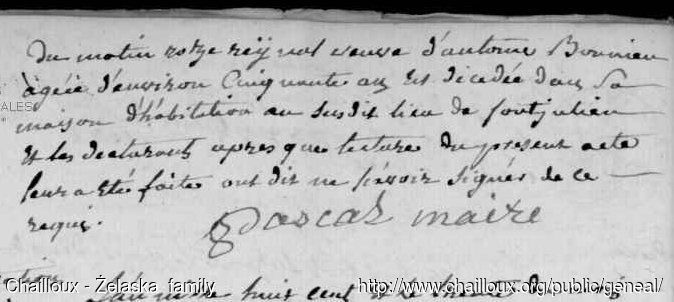 du matin roze reÿnal veuve d'antoine Bonnieu
àgéée d'environ Cinquante an Est décédée dans Sa
ALES
maison d'habitation au susdit lieu de fontjulien
Et les declarants apres que lecture du present acte
leur a Eté faite ont dit ne sçavoir signés de ce
requis.
Pascal maire
huit cent
Chailloux - Żelaska family
http://www.chailloux.org/public/geneal/